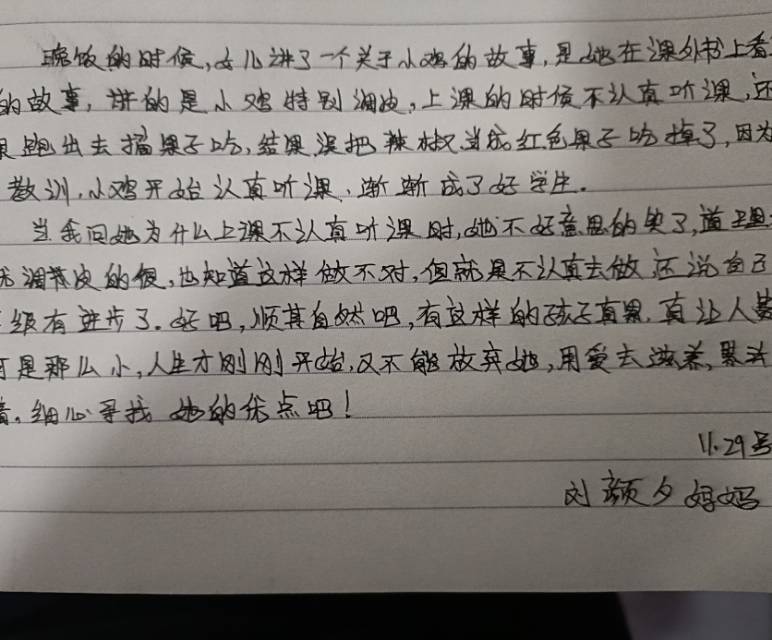 晚饭的时候,女儿讲了一个关于小鸡的故事,是她在课外书上看
的故事,讲的是小鸡特别调皮,上课的时候不认真听课,还
跑出去摘果子吃,结果误把辣椒当成红色果子吃掉了,因为
教训,小鸡开始认真听课,渐渐成了好学生.
当我问她为什么上课不认真听课时,她不好意思的笑了,道理
调皮的很,也知道这样做不对,但就是不认真去做 还说自己
级有进步了.好吧,顺其自然吧,有这样的孩子真累.真让人
是那么小,人生才刚刚开始,又不能放弃她,用爱去滋养,累并
着.细心寻找 她的优点吧!
11.29号
刘颜夕妈妈